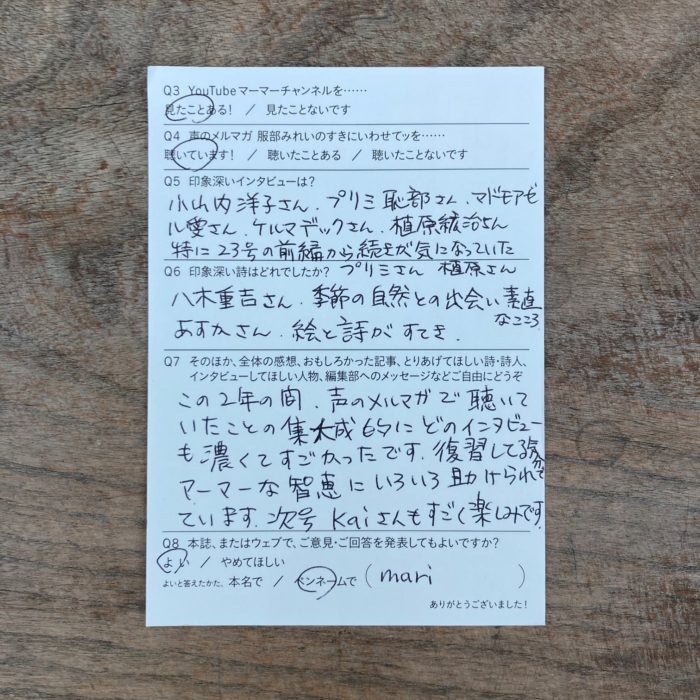 Q3 YouTubeマーマーチャンネルを……
見たことある! / 見たことないです
Q4 声のメルマガ 服部みれいのすきにいわせてッを……
聴いています! / 聴いたことある / 聴いたことないです
Q5 印象深いインタビューは?
小山内洋子さん、プリミ恥部さん、マドモアゼ
ル愛さん、ケルマデックさん、植原紘治さん
特に23号の前編から続きが気になっていた
プリミさん 植原さん
Q6 印象深い詩はどれでしたか?
八木重吉さん、季節の自然との出会い素直
なこころ
あすかさん、絵と詩がすてき.
Q7 そのほか、全体の感想、おもしろかった記事、とりあげてほしい詩・詩人、
インタビューしてほしい人物、編集部へのメッセージなどご自由にどうぞ
この2年の間、声のメルマガで聴いて
いたことの集大成 どのインタビュー
も濃くてすごかったです. 復習してる気分で
マーマーな智恵にいろいろ助けられ
ています. 次号 Kaiさんもすごく楽しみです.
Q8 本誌、またはウェブで、ご意見・ご回答を発表してもよいですか?
よい / やめてほしい
よいと答えたかた、本名で / ペンネームで ( mari )
ありがとうございました!